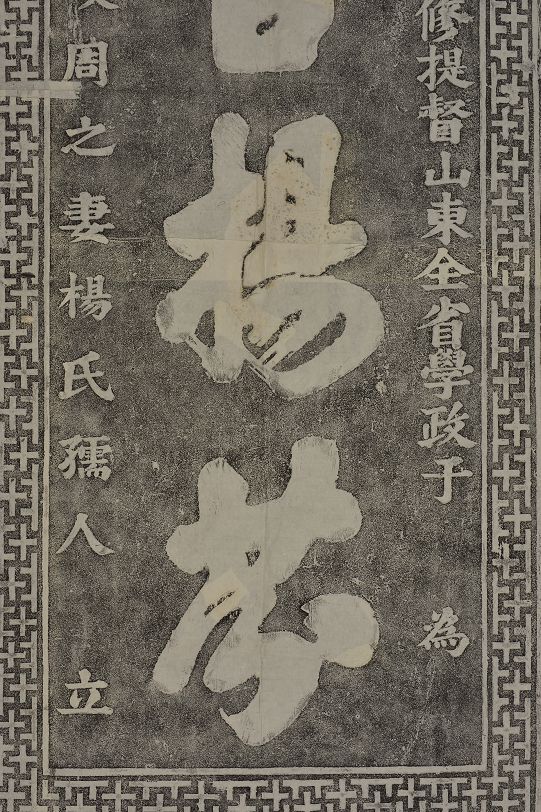 修提督山東全省學政于 為
管揚芬
周之妻楊氏孺人 立